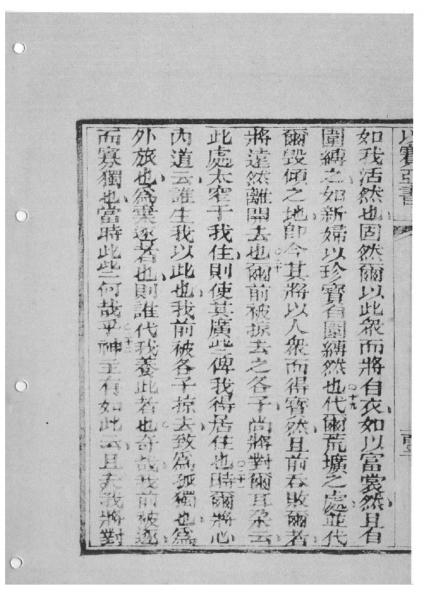 以賽亞書
如我活然也固然爾以此衆而將自衣如以富裳然且自
圍縛之如新婦以珍寶自圍縛然也代爾荒壙之處並代
爾毀傾之地即今其將以人衆而得窄然且前吞敗爾者
將遠然離開去也爾前被掠去之各子尚將對爾耳朶云
此處太窄于我住則使其廣些俾我得居住也時爾將心
內道云誰生我以此也我前被各子掠去致為孤獨也為
外旅也為棄逐者也則誰代我養此者也奇哉我前被遺
而寡獨也當時此些何哉乎神主有如此云且夫我將對